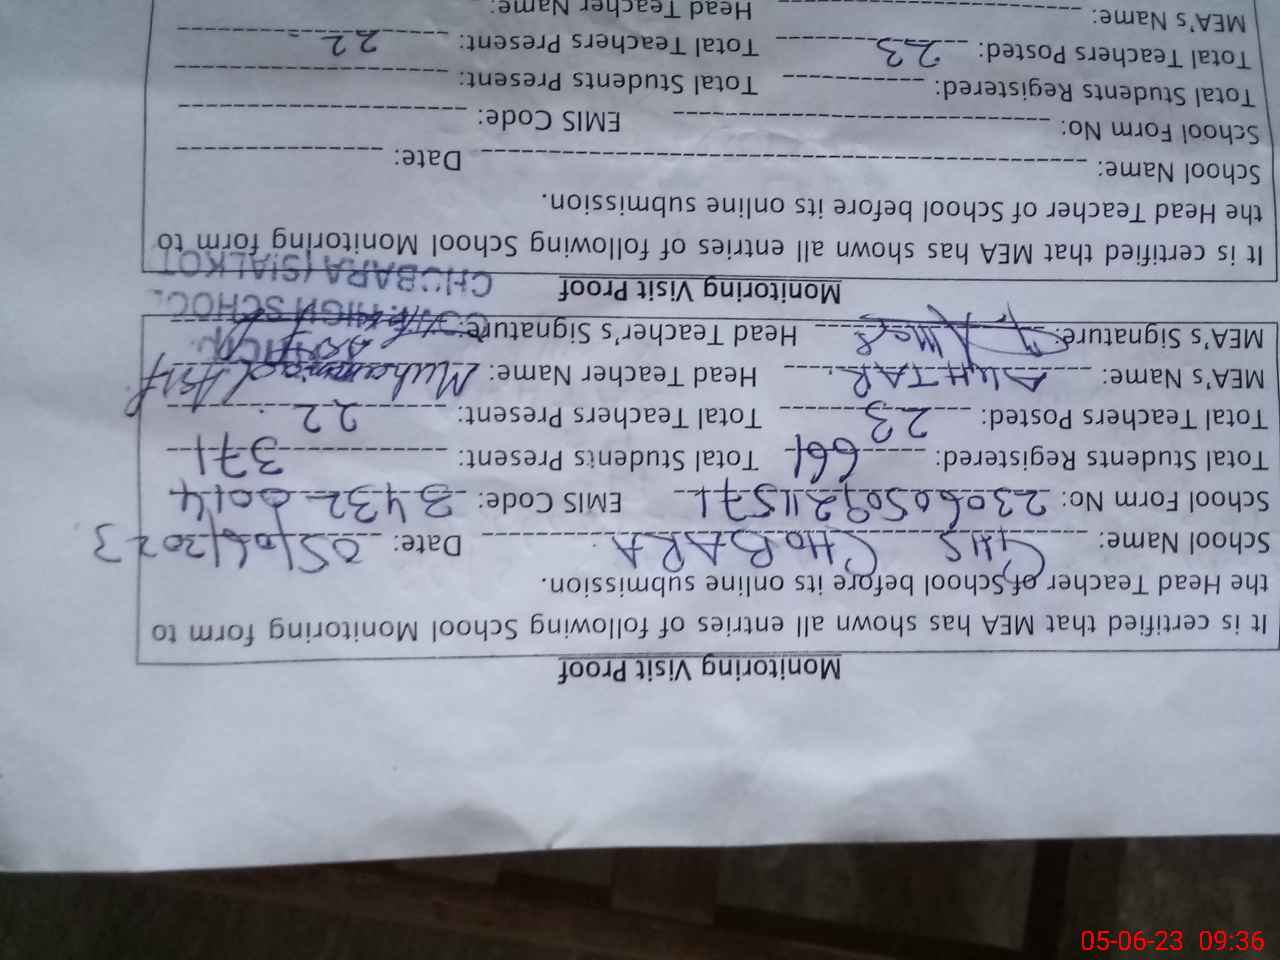 Monitoring Visit Proof
It is certified that MEA has shown all entries of following of School Monitoring form to
the Head Teacher of School before its online submission.
School Name: GHS CHOBARA Date: 05/06/2023
School Form No: 23060509211571 EMIS Code: 34320014
Total Students Registered: 661 Total Students Present: 371
Total Teachers Posted: 23 Total Teachers Present: 22
MEA's Name: AKHTAR Head Teacher Name: Muhammad Asif
MEA's Signature: Head Teacher's Signature:
HIGH SCHOOL
CHOBARA (SIALKOT
Monitoring Visit Proof
It is certified that MEA has shown all entries of following School Monitoring form to
the Head Teacher of School before its online submission.
School Name: Date:
School Form No: EMIS Code:
Total Students Registered: Total Students Present:
Total Teachers Posted: 23 Total Teachers Present: 22
MEA's Name: Head Teacher Name:
05-06-23 09:36